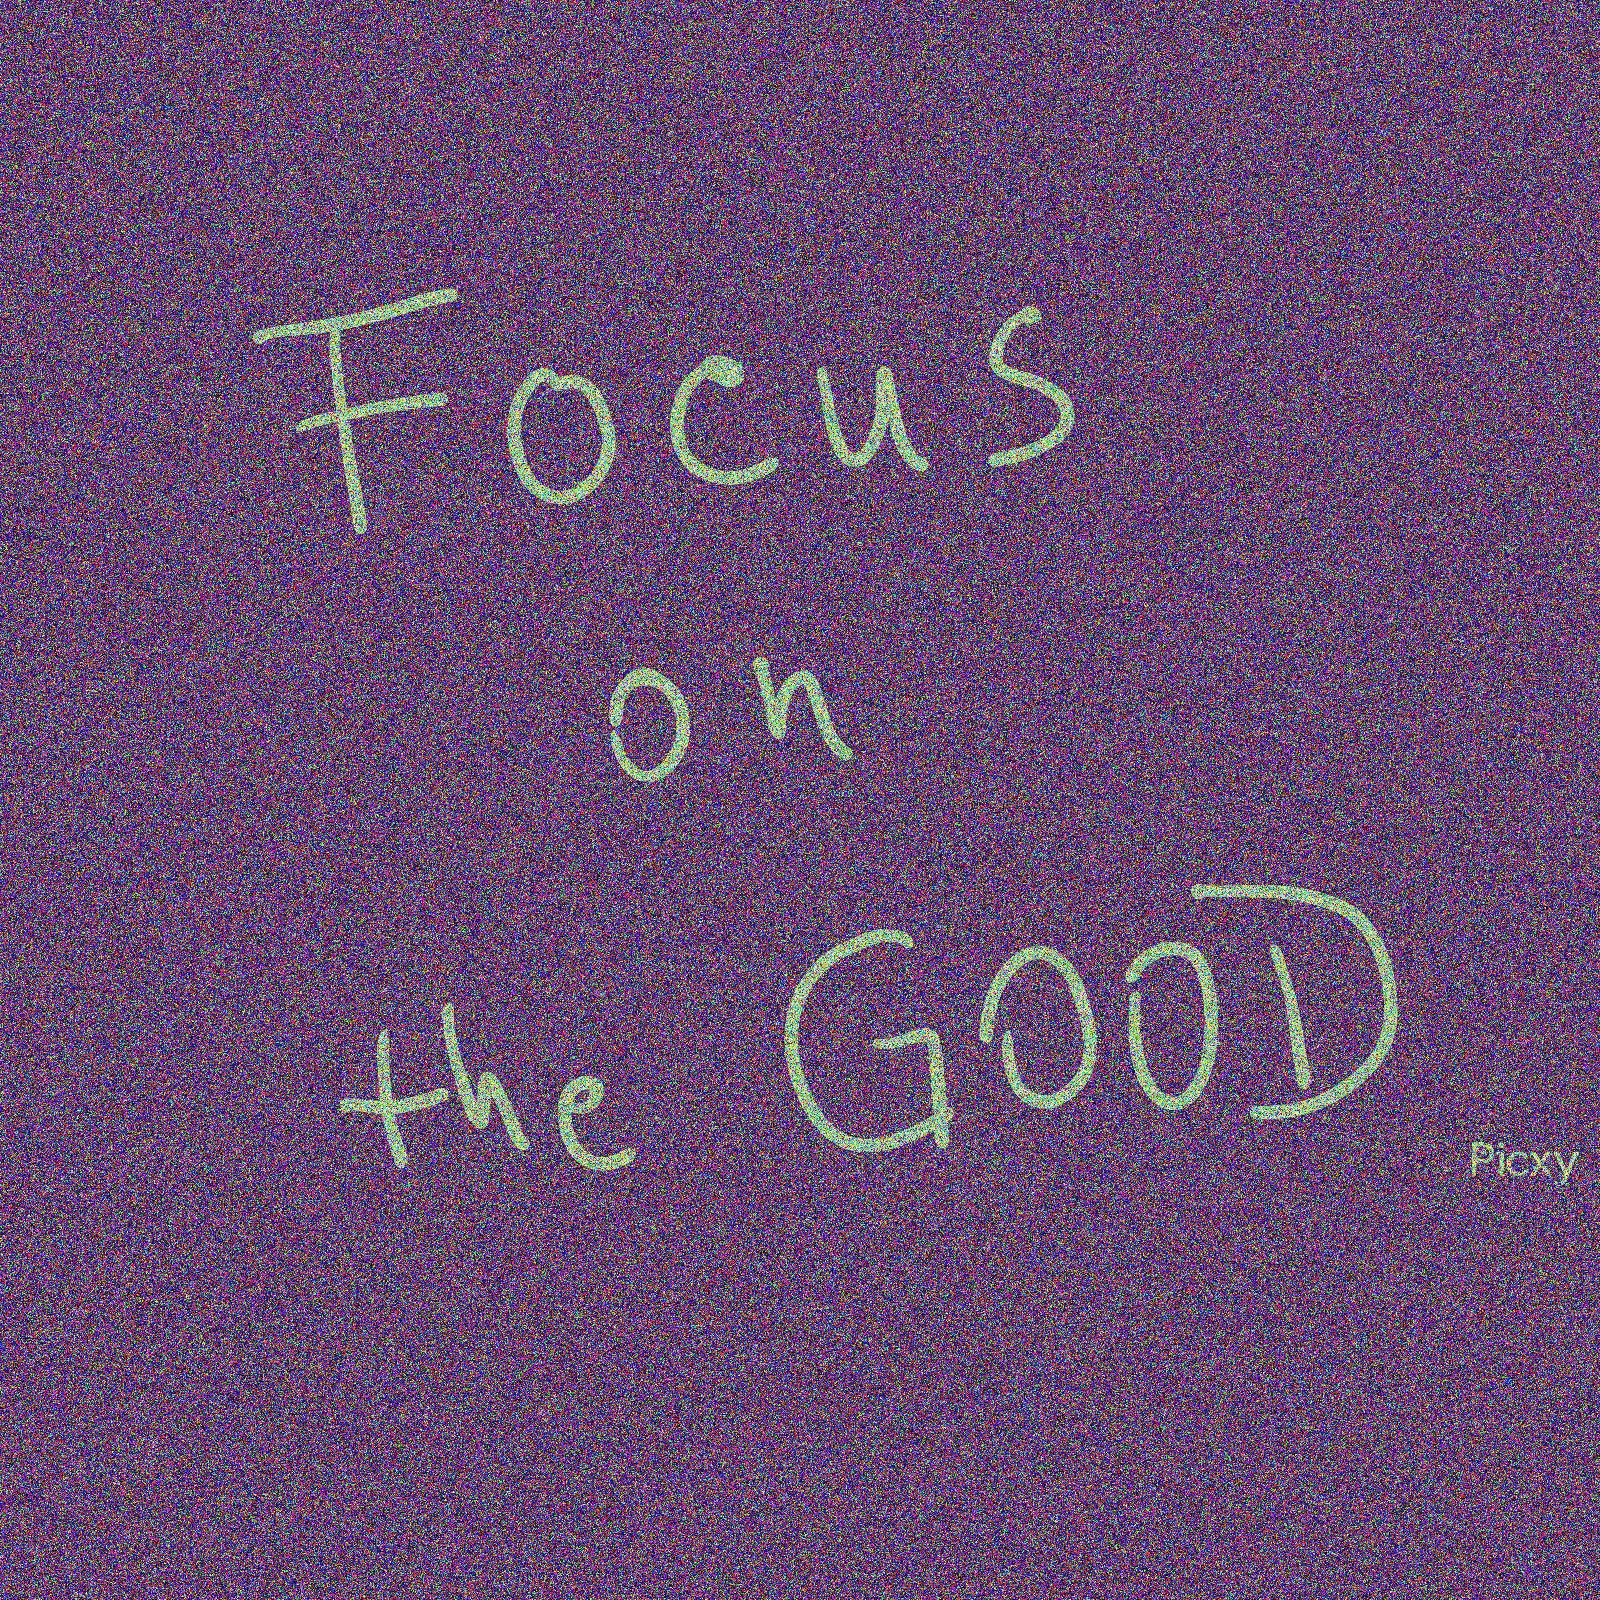 Focus
on
the GOOD
Picxy